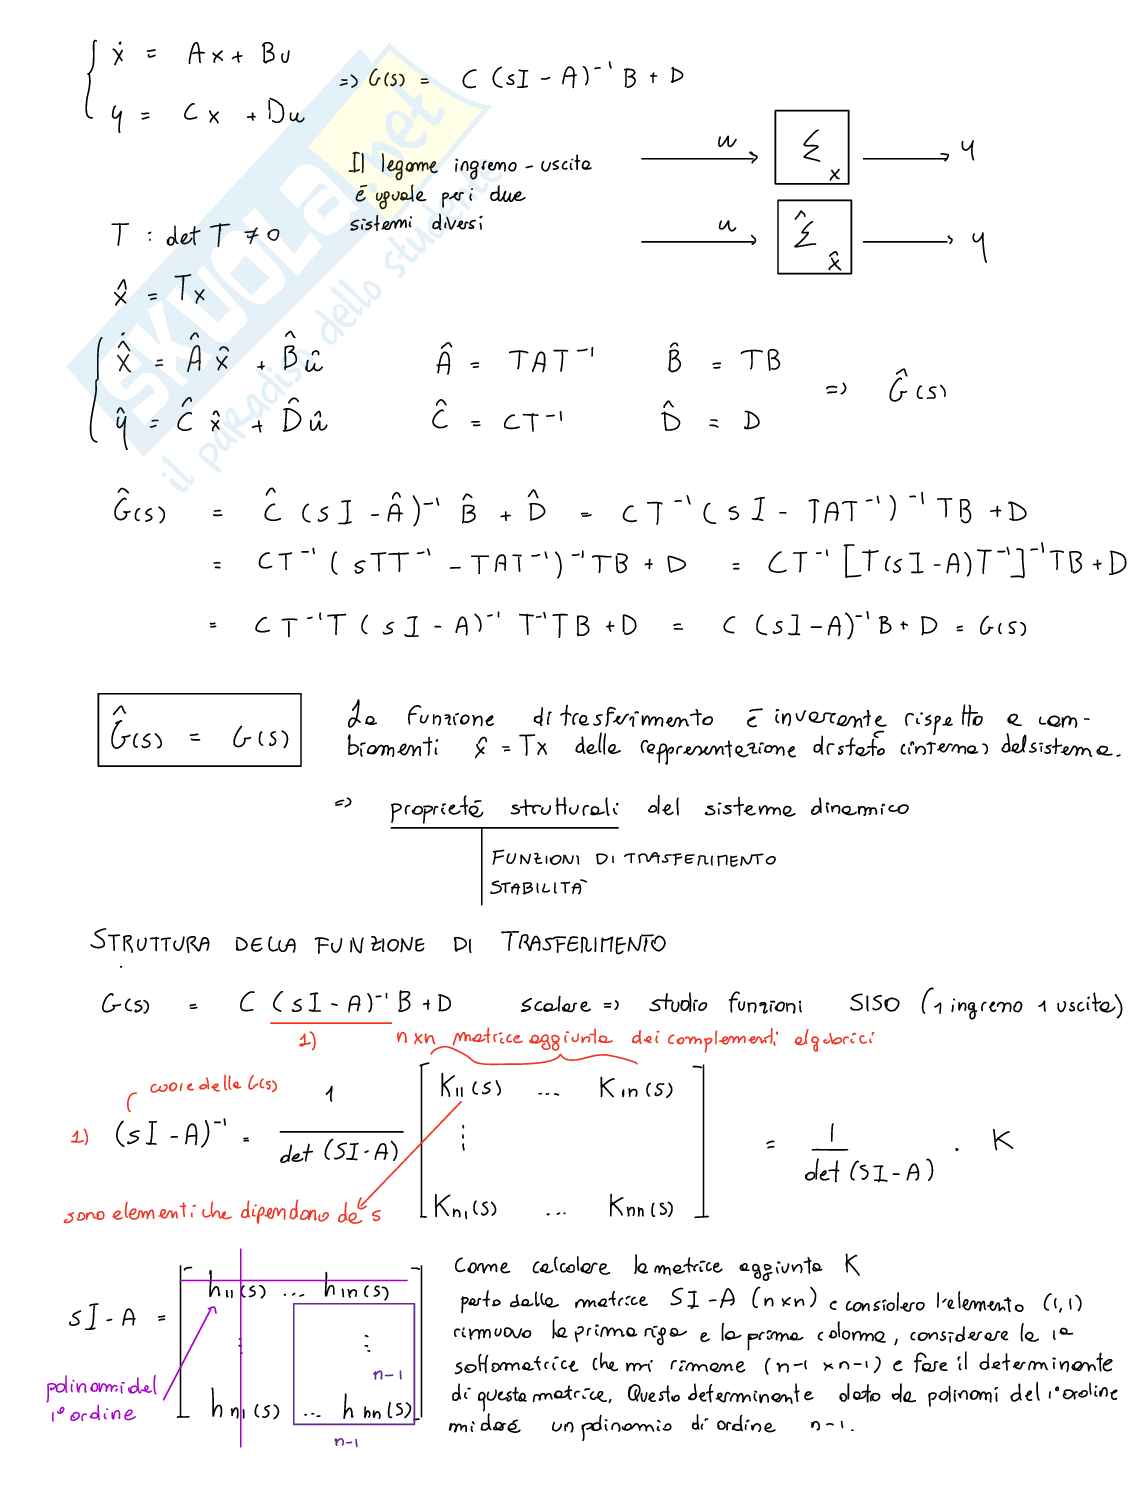 ẋ = Ax + Bu
y = Cx + Du
=> G(s) = C (sI - A)⁻¹ B + D
Il legame ingresso - uscita
è uguale per i due
sistemi diversi
u Σ x y
u Σ̂ x̂ y
T : det T ≠ 0
x̂ = Tx
x̂̇ = Â x̂ + B̂ û Â = TAT⁻¹ B̂ = TB
ŷ = Ĉ x̂ + D̂ û Ĉ = CT⁻¹ D̂ = D
=> Ĝ(s)
Ĝ(s) = Ĉ (sI - Â)⁻¹ B̂ + D̂ = CT⁻¹ (sI - TAT⁻¹)⁻¹ TB + D
= CT⁻¹ (sTT⁻¹ - TAT⁻¹)⁻¹ TB + D = CT⁻¹ [T(sI - A)T⁻¹]⁻¹ TB + D
= CT⁻¹T (sI - A)⁻¹ T⁻¹TB + D = C (sI - A)⁻¹ B + D = G(s)
Ĝ(s) = G(s)
La funzione di trasferimento è invariante rispetto a cam-
biamenti x̂ = Tx della rappresentazione di stato (interna) del sistema.
=> proprietà strutturali del sistema dinamico
FUNZIONI DI TRASFERIMENTO
STABILITÀ
STRUTTURA DELLA FUNZIONE DI TRASFERIMENTO
G(s) = C (sI - A)⁻¹ B + D scalare => studio funzioni SISO (1 ingresso 1 uscita)
1) nxn matrice aggiunta dei complementi algebrici
cuore della G(s)
1) (sI - A)⁻¹ = 1 / det (SI - A) [ K11(s) ... K1n(s)
⋮
Kn1(s) ... Knn(s) ] = 1 / det (SI - A) · K
sono elementi che dipendono da s
sI - A = [ h11(s) ... h1n(s)
⋮ ⋮
n-1
hn1(s) ... hnn(s) ]
n-1
polinomi del
1° ordine
Come calcolare la matrice aggiunta K
parto dalla matrice SI - A (nxn) e considero l'elemento (1,1)
rimuovo la prima riga e la prima colonna, considerare la 1ª
sottomatrice che mi rimane (n-1 x n-1) e fare il determinante
di questa matrice. Questo determinante dato da polinomi del 1° ordine
mi darà un polinomio di ordine n-1.
SKUOLA.net
il paradiso dello studente